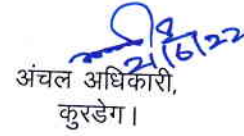 21/6/22
अंचल अधिकारी,
कुरडेग।